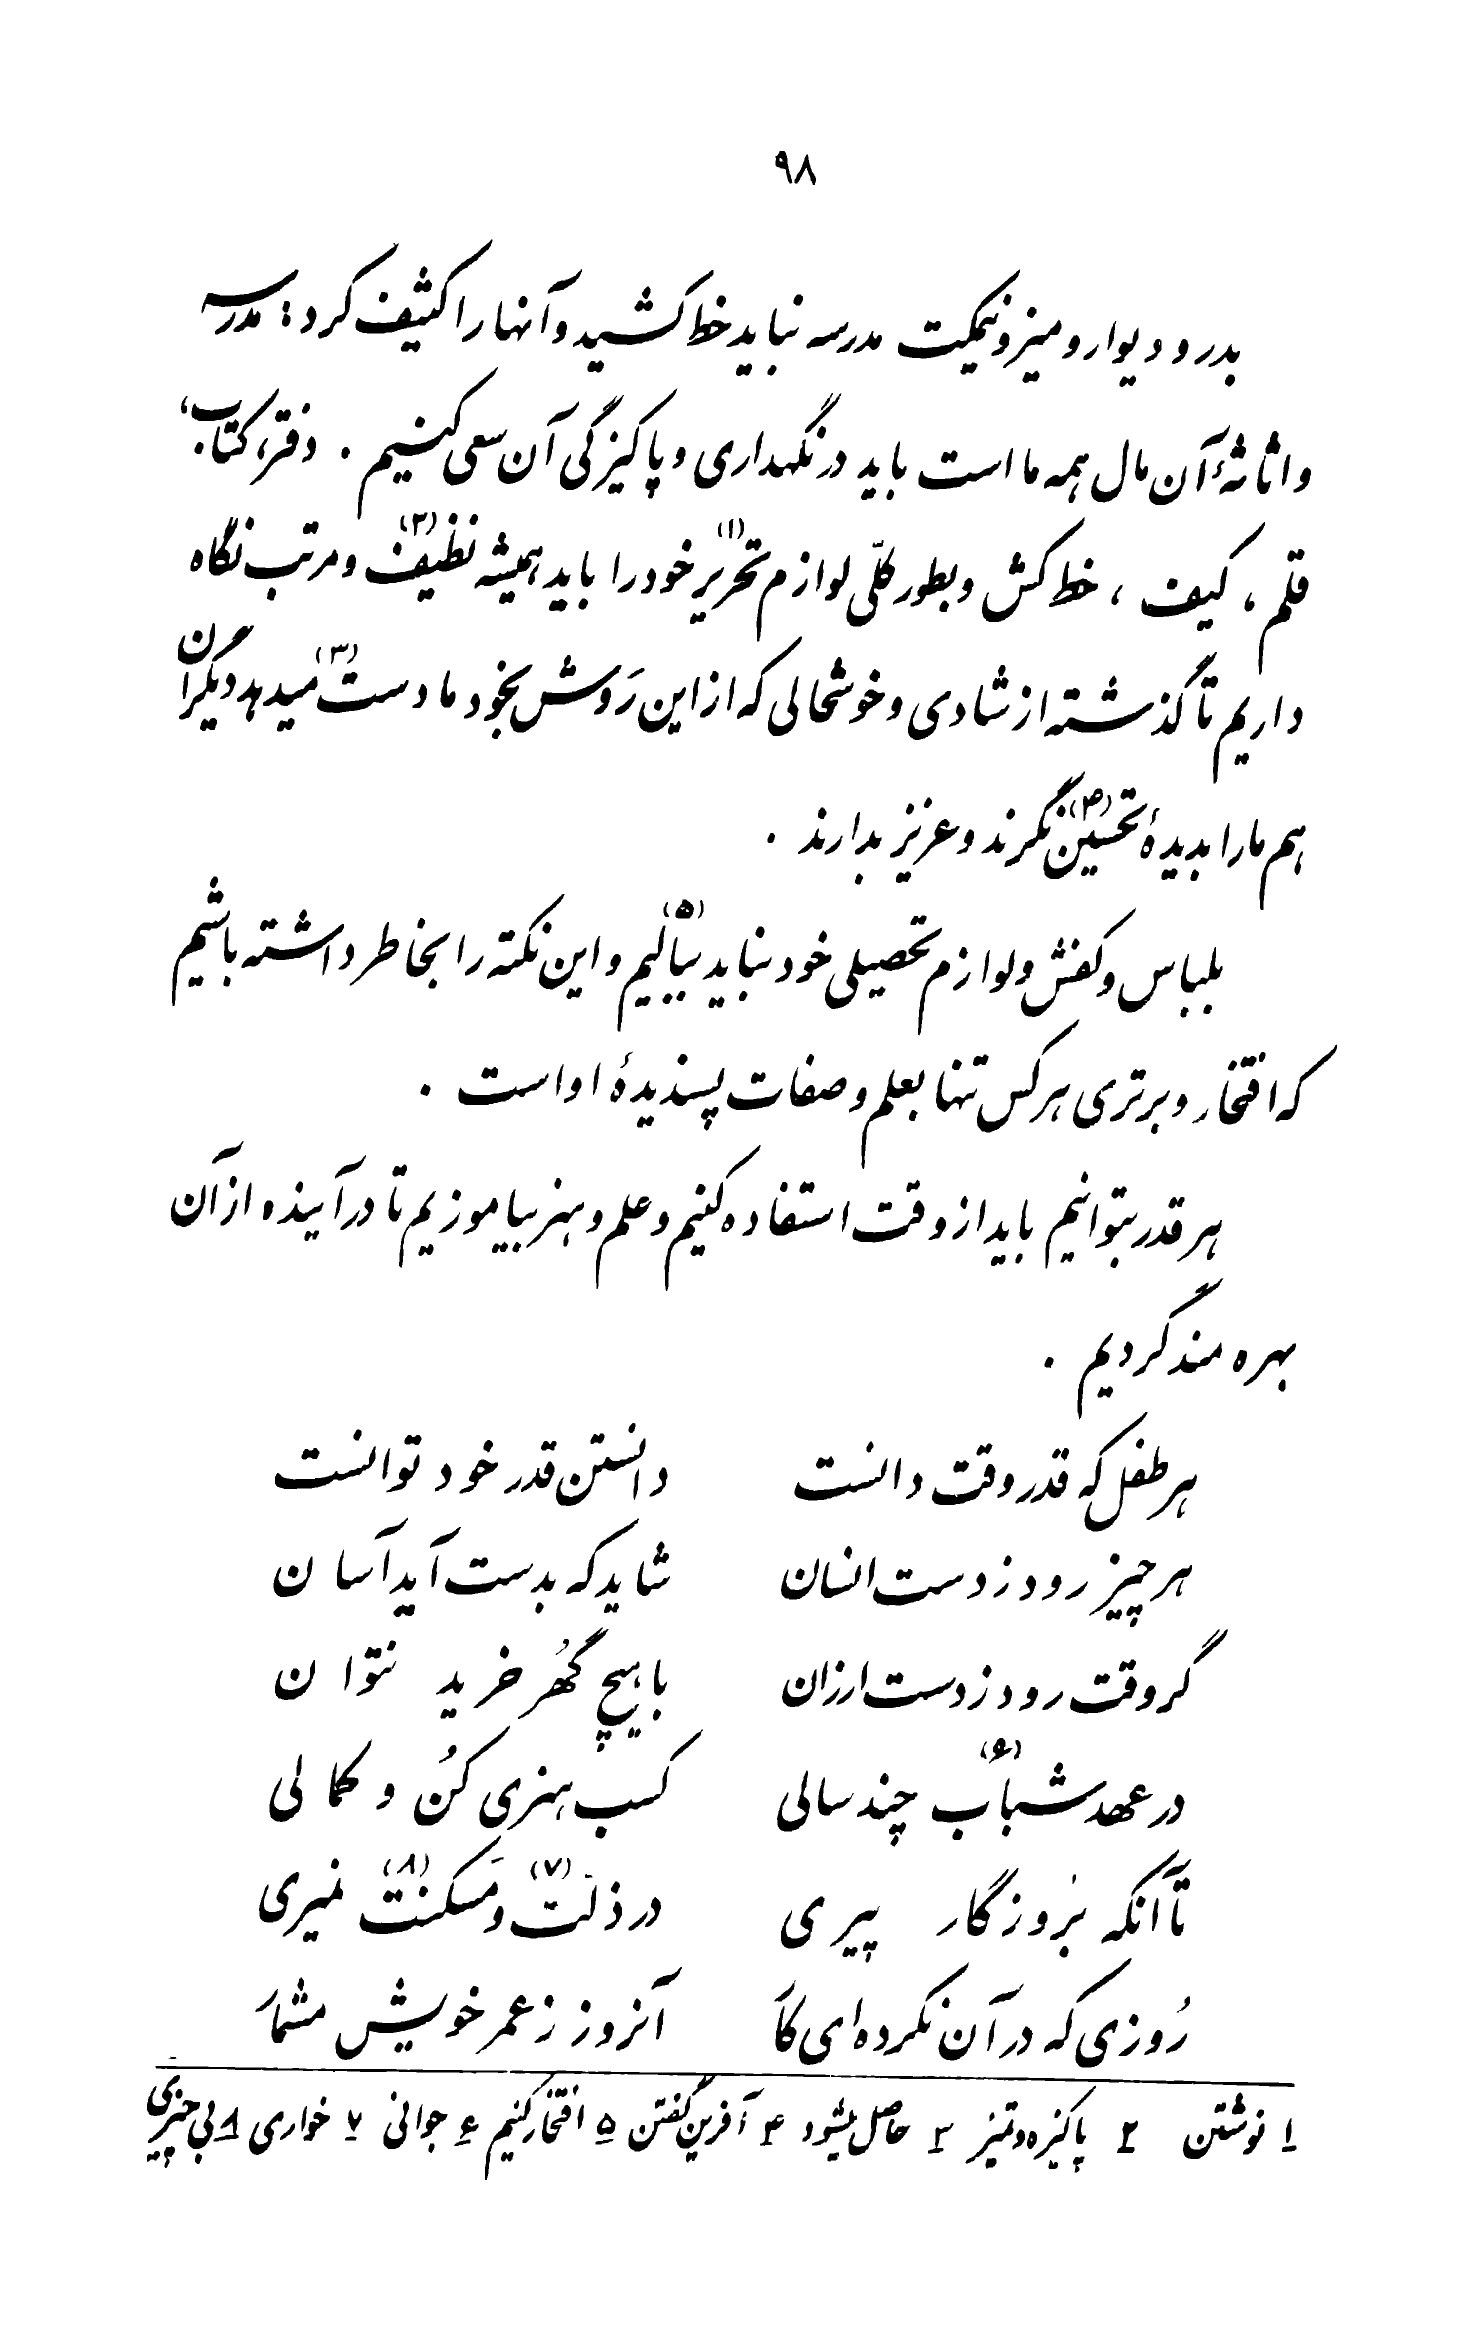 ۹۸
بدر و دیوار و میز و نیمکت مدرسه نباید خط کشید و آنها را کثیف کرد : مدرسه
و اثاثهٔ آن مال همه ما است باید در نگهداری و پاکیزگی آن سعی کنیم . دفتر، کتاب،
قلم ، کیف ، خط کش و بطور کلّی لوازم تحریر(۱) خود را باید همیشه نظیف(۲) و مرتب نگاه
داریم تا گذشته از شادی و خوشحالی که از این رَوِش بخود ما دست(۳) میدهد دیگران
هم ما را بدیدهٔ تحسین(۴) نگرند و عزیز بدارند .
بلباس و کفش و لوازم تحصیلی خود نباید ببالیم(۵) و این نکته را بخاطر داشته باشیم
که افتخار و برتری هر کس تنها بعلم و صفات پسندیدهٔ او است .
هر قدر بتوانیم باید از وقت استفاده کنیم و علم و هنر بیاموزیم تا در آینده از آن
بهره مند گردیم .
هر طفل که قدر وقت دانست دانستن قدر خود توانست
هر چیز رود ز دست انسان شاید که بدست آید آسان
گر وقت رود ز دست ارزان با هیچ گُهر خرید نتوان
در عهد شباب(۶) چند سالی کسب هنری کُن و کمالی
تا آنکه بُروزگار پیری در ذلّت(۷) و مَسکنت(۸) نمیری
رُوزی که در آن نکرده ای کار آنروز ز عمر خویش مشمار
۱ نوشتن ۲ پاکیزه و تمیز ۳ حاصل میشود ۴ آفرین گفتن ۵ افتخار کنیم ۶ جوانی ۷ خواری ۸ بی چیزی